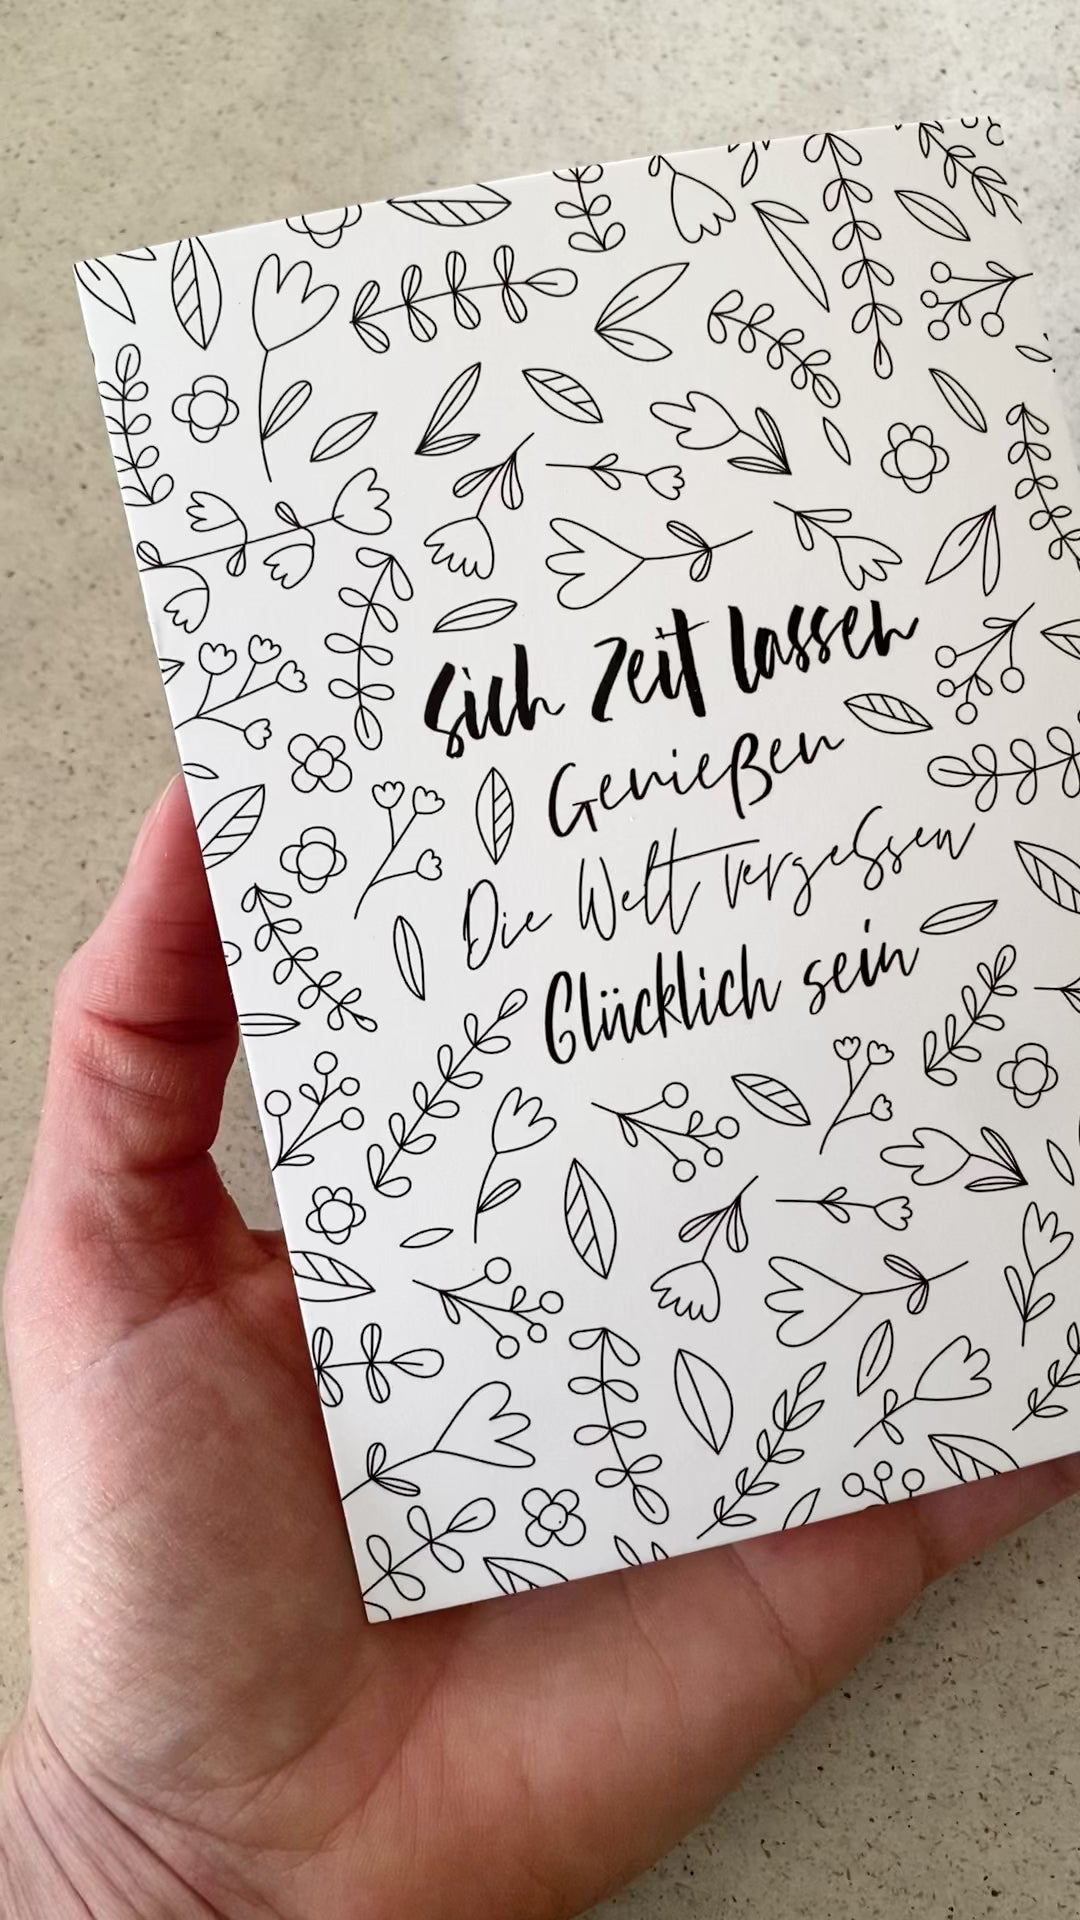 Sich Zeit lassen
Genießen
Die Welt vergessen
Glücklich sein